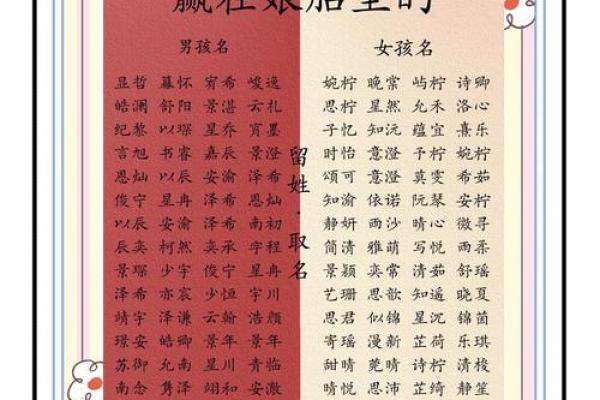 赢在娘胎里的
男孩名
女孩名
显哲 慕怀 宥希 峻逸
皓澜 舒阳 景湛 云礼
纪黎 以琛 星乔 宵墨
言旭 书睿 嘉辰 景澄
恩灿 以辰 安渝 泽希
俊宁 星冉 泽希 恩灿
以辰 安渝 泽希 南初
辰奕 柯然 奕承 宇程
景琛 少宇 俊宁 星冉
泽希 亦宸 少恒 宇川
靖宇 泽谦 云翰 浩颜
璟安 皓南 景年 景年
苏御 允南 星川 青临
南念 隽泽 翊和 安澈
留姓·取名
婉柠 晚棠 屿柠 诗卿
思柠 星然 允禾 洛心
子忆 知沅 蕴宜 熹乐
时怡 意澄 予柠 婉柠
颂可 意澄 莫雯 希茹
知渝 依诺 阮琴 安柠
静妍 雨沙 晴心 微寻
简清 雅萌 写悦 雨柔
景颖 奕常 清茹 舒瑶
艺珊 思歆 知遥 晓夏
思君 似锦 星沉 锦茵
寄瑶 漫新 芷荷 乐琪
甜晴 莞晴 诗柠 清梭
晴悦 思沛 芷绮 静笙